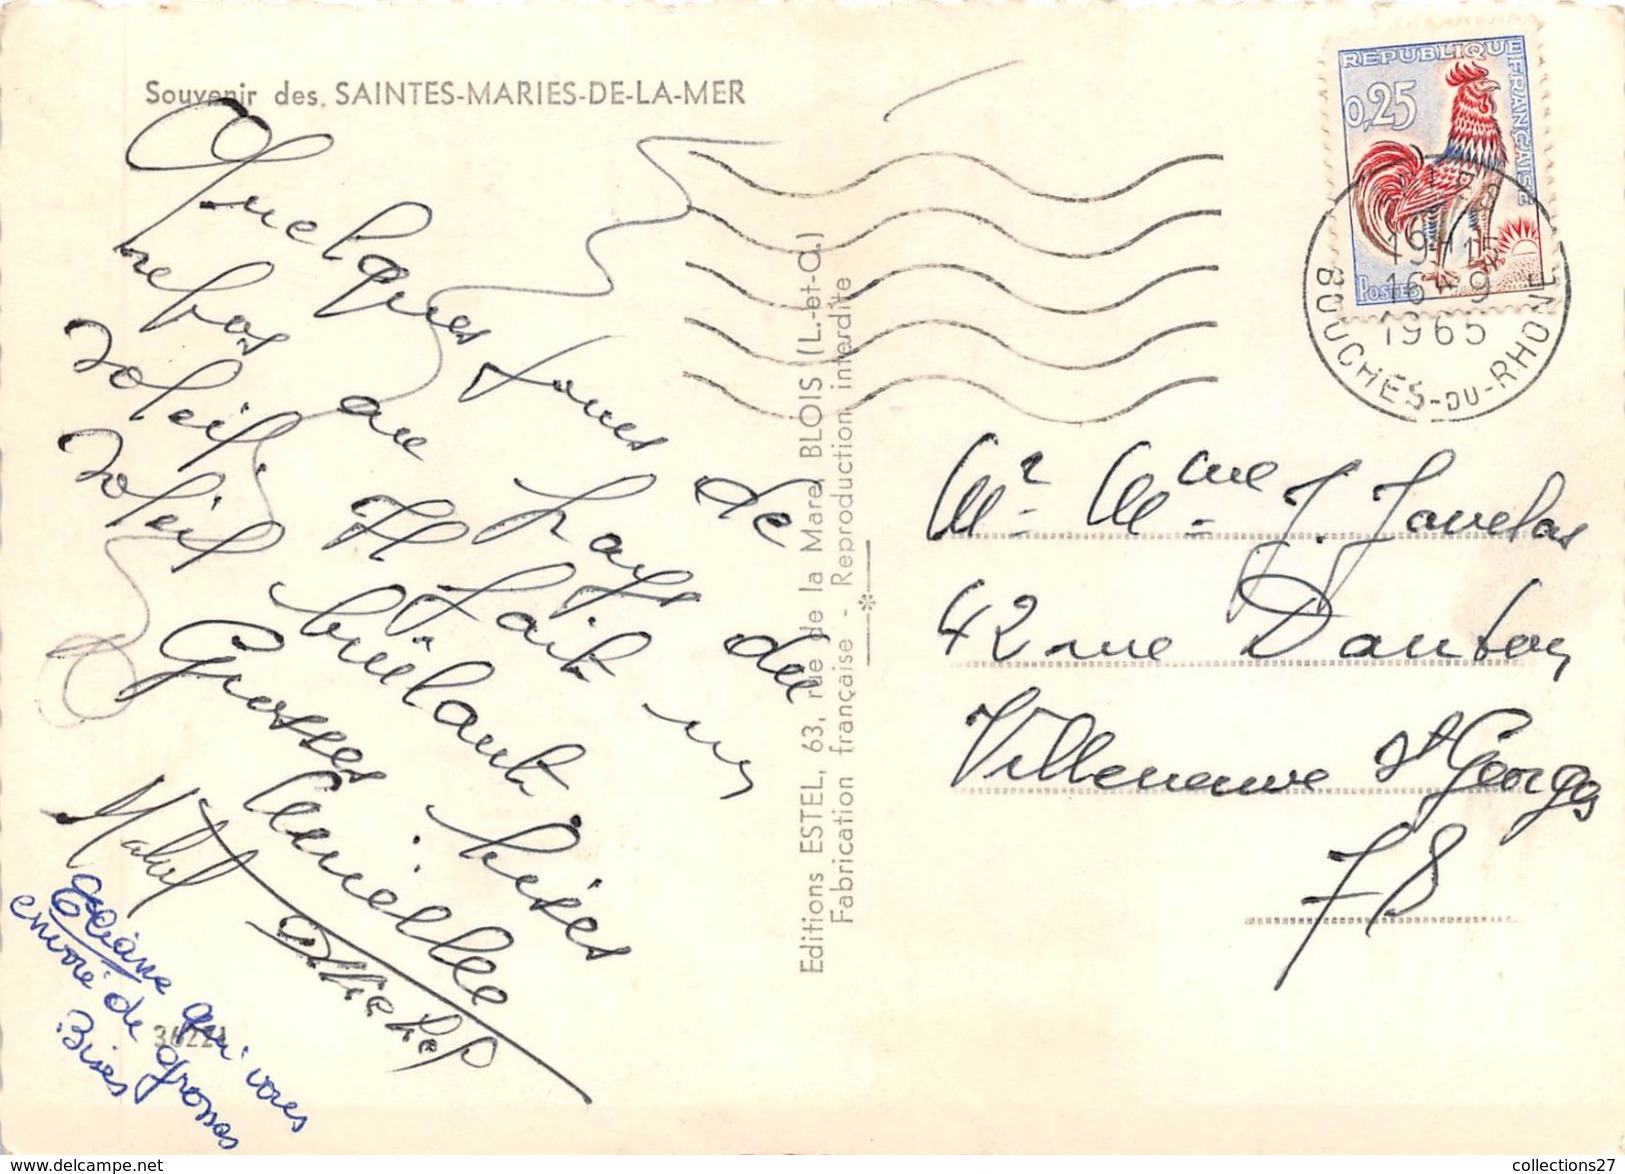 Souvenir des SAINTES-MARIES-DE-LA-MER
Quelques jours de
repos au pays du
soleil. Il fait un
soleil brûlant.
Grosses bises
Camille
Michel
Eliane qui vous
envoie de grosses
Bises
36221
Editions ESTEL, 63, rue de la Mare, BLOIS (L.-et-C.)
Fabrication française - Reproduction interdite
REPUBLIQUE FRANÇAISE
0,25
POSTES
19H15
16-9
1965
BOUCHES-DU-RHONE
Mr. Mme. J. Javelas
42 rue Danton
Villeneuve St Georges
78
collections27